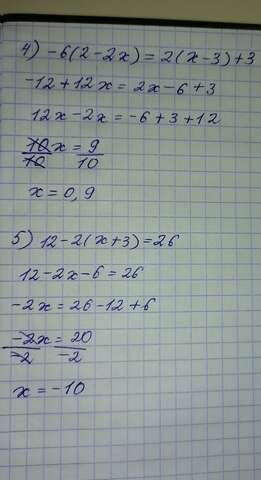 4) -6(2-2x)=2(x-3)+3
-12+12x=2x-6+3
12x-2x=-6+3+12
10x/10=9/10
x=0,9
5) 12-2(x+3)=26
12-2x-6=26
-2x=26-12+6
-2x/-2=20/-2
x=-10